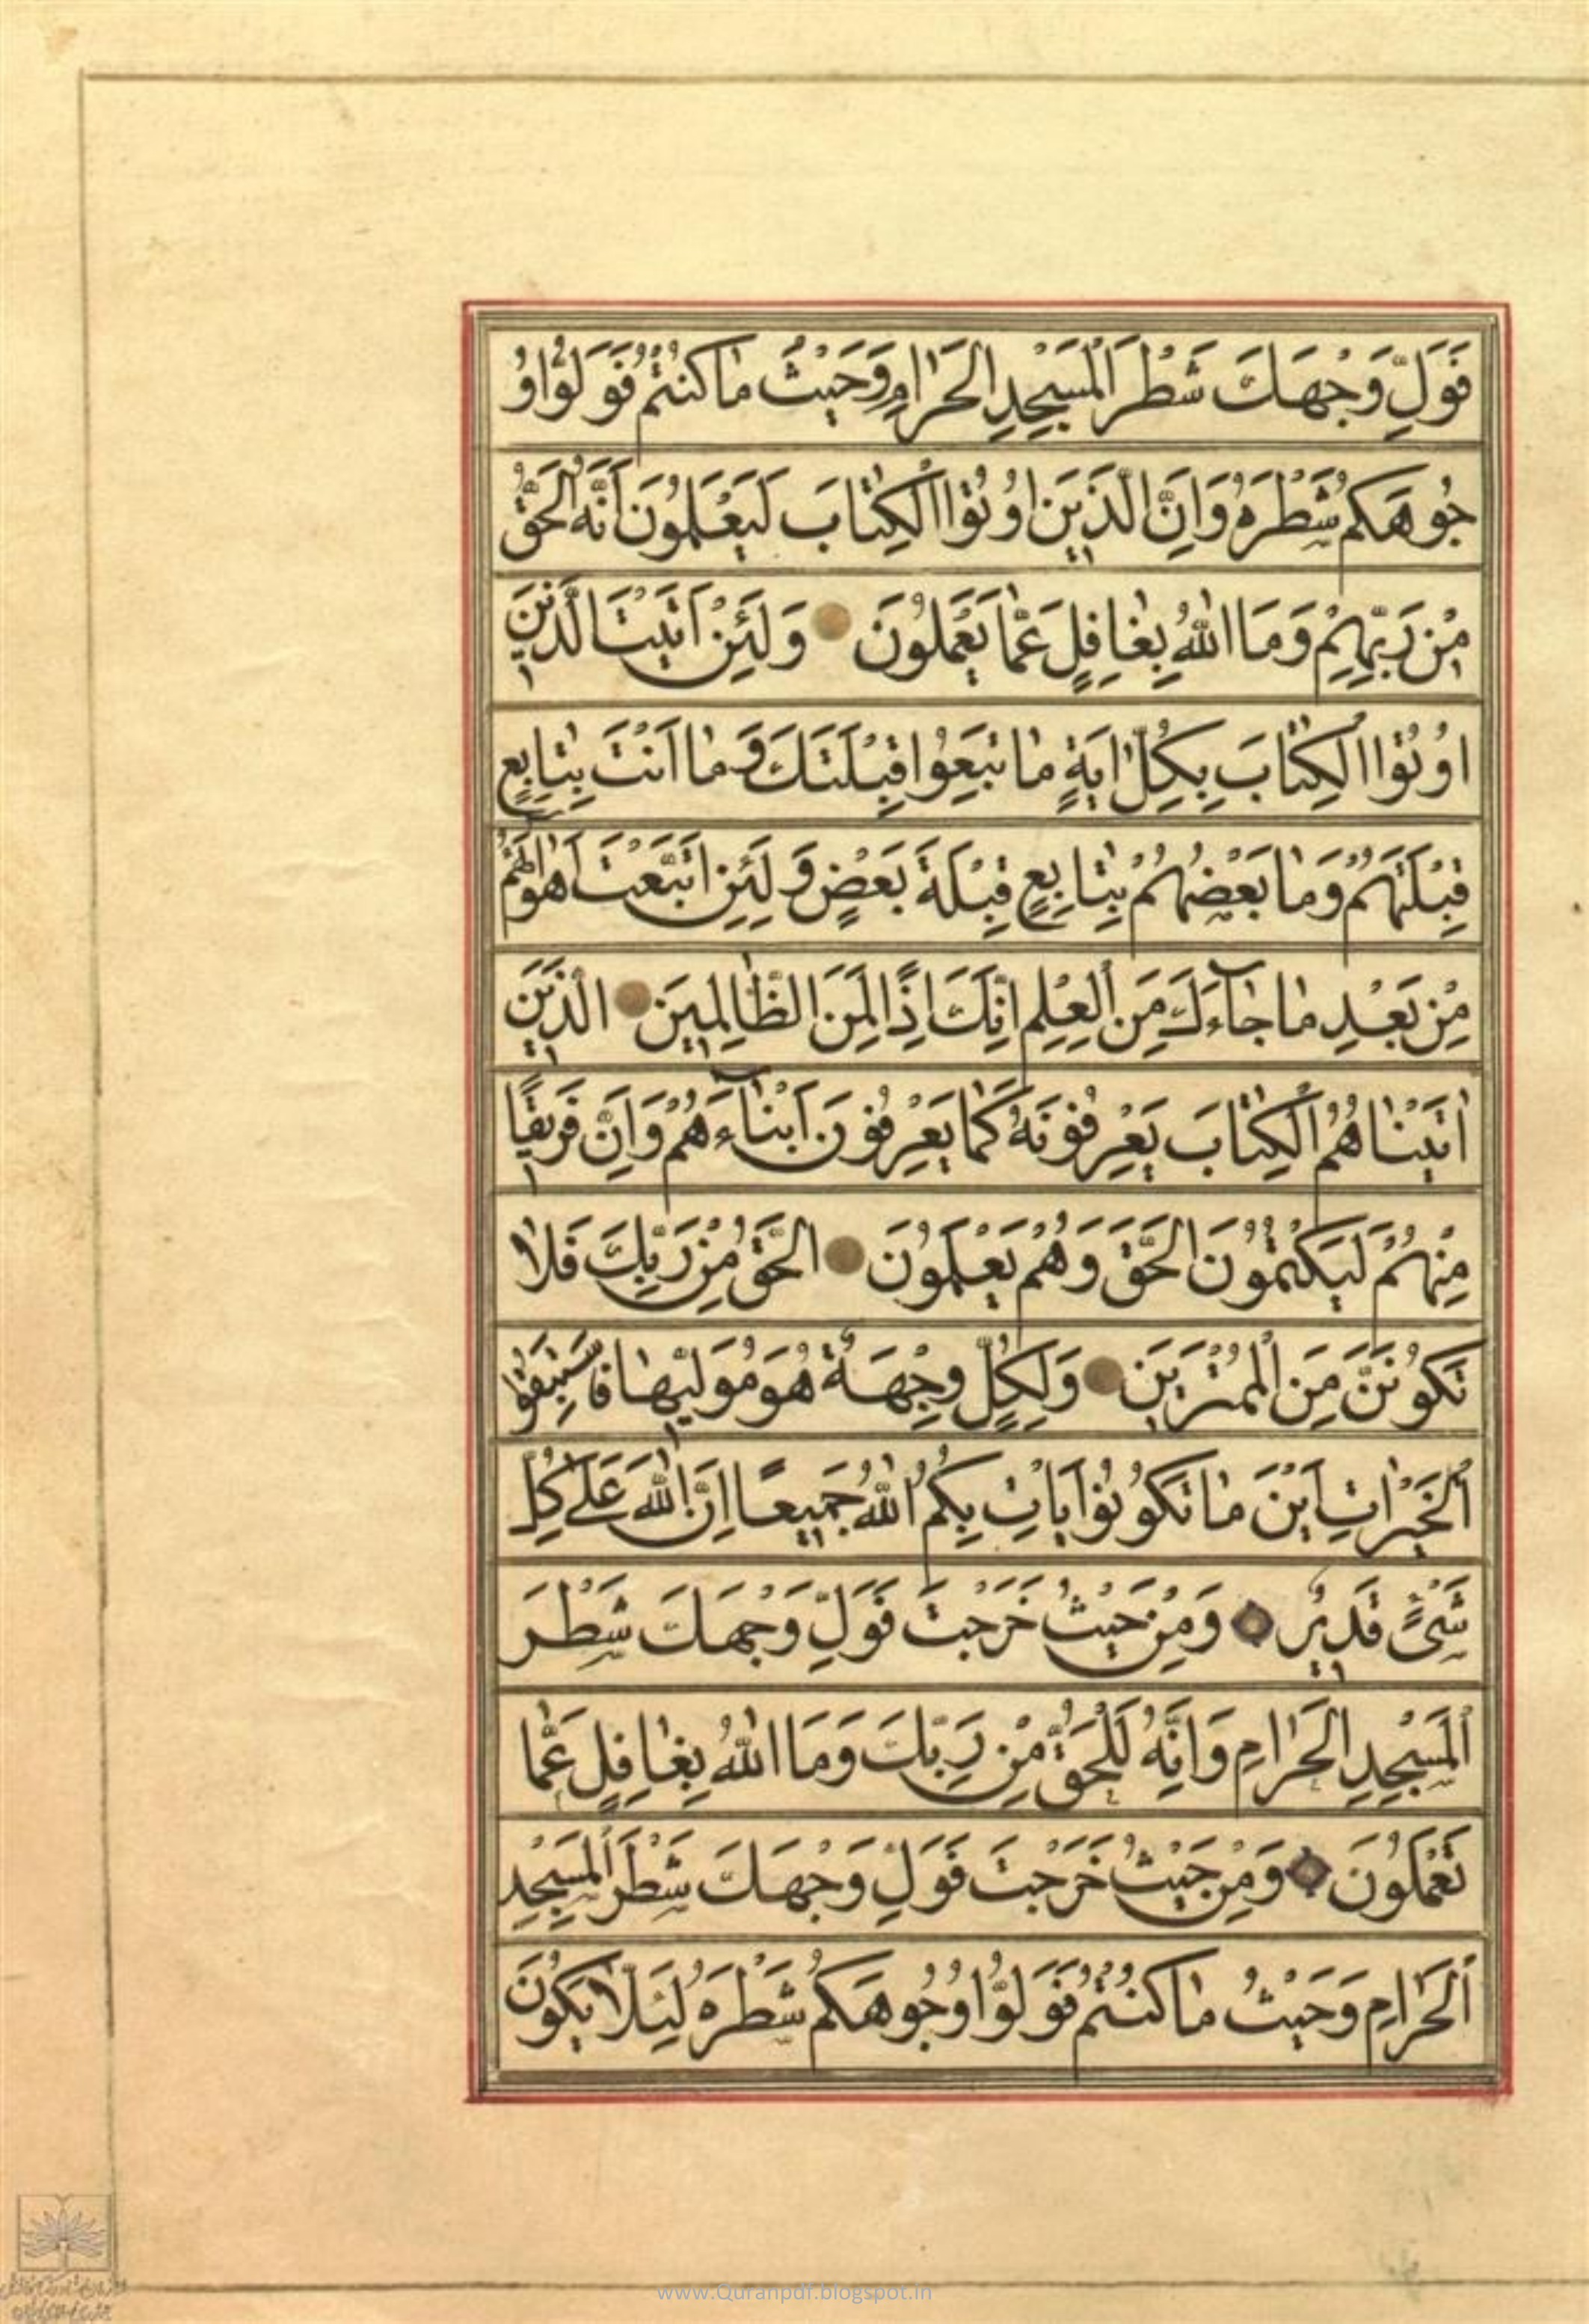 فَوَلِّ وَجْهَكَ شَطْرَ الْمَسْجِدِ الْحَرَامِ وَحَيْثُ مَا كُنْتُمْ فَوَلُّوا وُ
جُوهَكُمْ شَطْرَهُ وَاِنَّ الَّذِينَ اُوتُوا الْكِتَابَ لَيَعْلَمُونَ اَنَّهُ الْحَقُّ
مِنْ رَبِّهِمْ وَمَا اللهُ بِغَافِلٍ عَمَّا يَعْمَلُونَ وَلَئِنْ اَتَيْتَ الَّذِينَ
اُوتُوا الْكِتَابَ بِكُلِّ اٰيَةٍ مَا تَبِعُوا قِبْلَتَكَ وَمَا اَنْتَ بِتَابِعٍ
قِبْلَتَهُمْ وَمَا بَعْضُهُمْ بِتَابِعٍ قِبْلَةَ بَعْضٍ وَلَئِنِ اتَّبَعْتَ اَهْوَاءَهُمْ
مِنْ بَعْدِ مَا جَاءَكَ مِنَ الْعِلْمِ اِنَّكَ اِذًا لَمِنَ الظَّالِمِينَ الَّذِينَ
اٰتَيْنَاهُمُ الْكِتَابَ يَعْرِفُونَهُ كَمَا يَعْرِفُونَ اَبْنَاءَهُمْ وَاِنَّ فَرِيقًا
مِنْهُمْ لَيَكْتُمُونَ الْحَقَّ وَهُمْ يَعْلَمُونَ الْحَقُّ مِنْ رَبِّكَ فَلَا
تَكُونَنَّ مِنَ الْمُمْتَرِينَ وَلِكُلٍّ وِجْهَةٌ هُوَ مُوَلِّيهَا فَاسْتَبِقُوا
الْخَيْرَاتِ اَيْنَ مَا تَكُونُوا يَاْتِ بِكُمُ اللهُ جَمِيعًا اِنَّ اللهَ عَلَى كُلِّ
شَىْءٍ قَدِيرٌ وَمِنْ حَيْثُ خَرَجْتَ فَوَلِّ وَجْهَكَ شَطْرَ
الْمَسْجِدِ الْحَرَامِ وَاِنَّهُ لَلْحَقُّ مِنْ رَبِّكَ وَمَا اللهُ بِغَافِلٍ عَمَّا
تَعْمَلُونَ وَمِنْ حَيْثُ خَرَجْتَ فَوَلِّ وَجْهَكَ شَطْرَ الْمَسْجِدِ
الْحَرَامِ وَحَيْثُ مَا كُنْتُمْ فَوَلُّوا وُجُوهَكُمْ شَطْرَهُ لِئَلَّا يَكُونَ
www.Quranpdf.blogspot.in